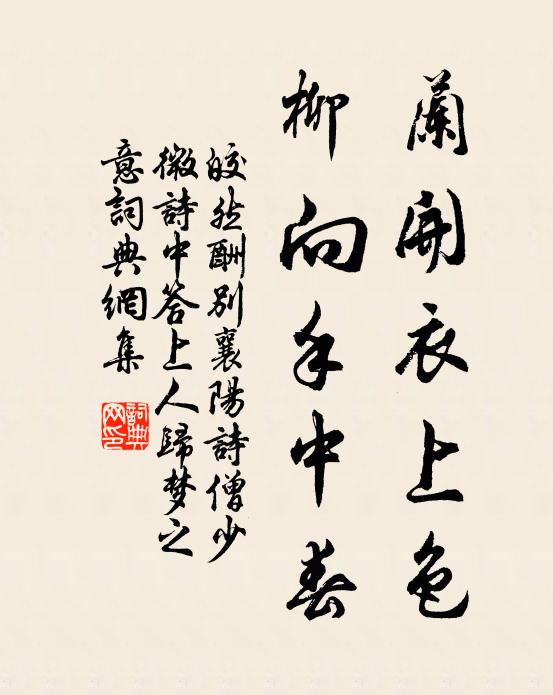 蘭開衣上色
柳向手中春
皎然酬別襄陽詩僧少
微詩中答上人歸梦之
意詞典網集
詞典网印